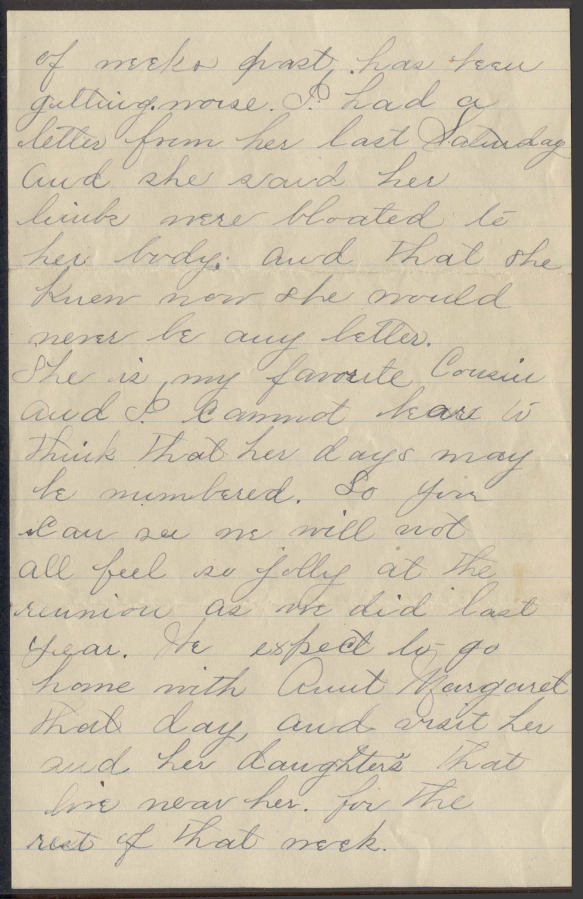 of weeks past has been
getting worse. I had a
letter from her last Saturday
and she said her
limbs were bloated to
her body. and that she
knew now she would
never be any better.
She is my favorite Cousin
and I cannot bear to
think that her days may
be numbered. So you
can see we will not
all feel so jolly at the
reunion as we did last
year. We expect to go
home with Aunt Margaret
that day, and visit her
and her daughter's that
live near her. for the
rest of that week.